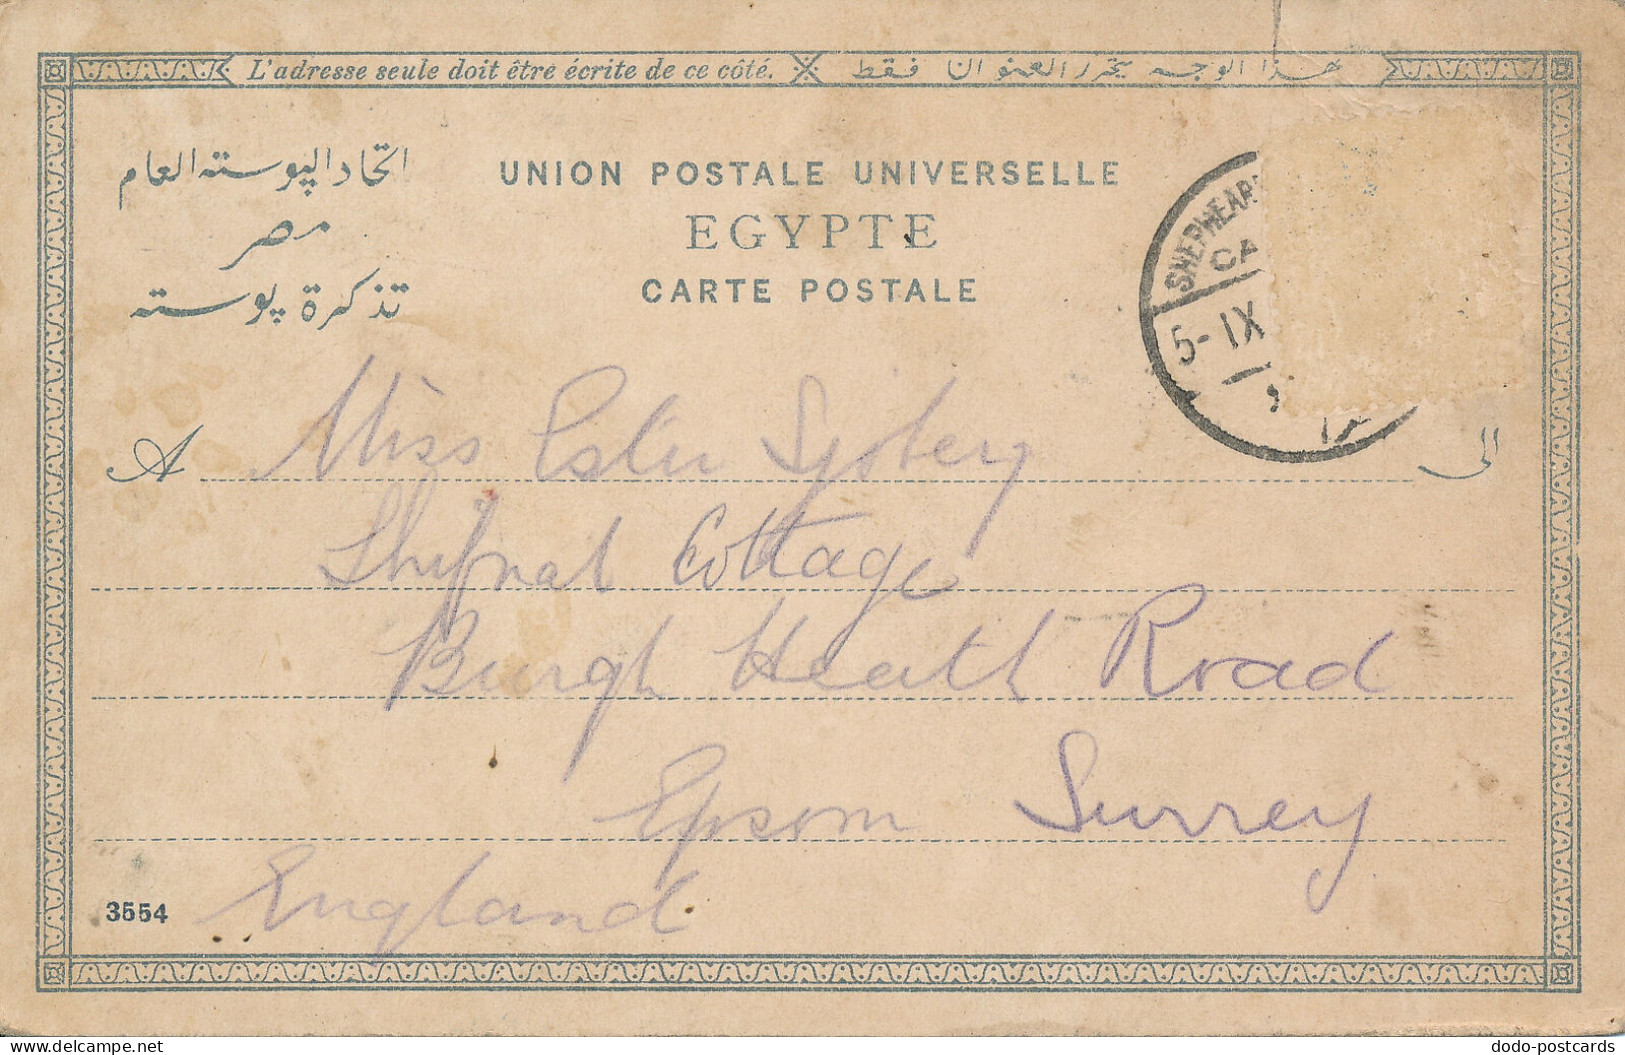 L'adresse seule doit être écrite de ce côté. هذا الوجه يحرر العنوان فقط
اتحاد البوسته العام
مصر
تذكرة بوسته
UNION POSTALE UNIVERSELLE
EGYPTE
CARTE POSTALE
SHEPHEAR
CA
5-IX
A Miss Ester Sjoberg الى
Shifnal Cottage
Burgh Heath Road
Epsom Surrey
England
3554
delcampe.net
dodo-postcards